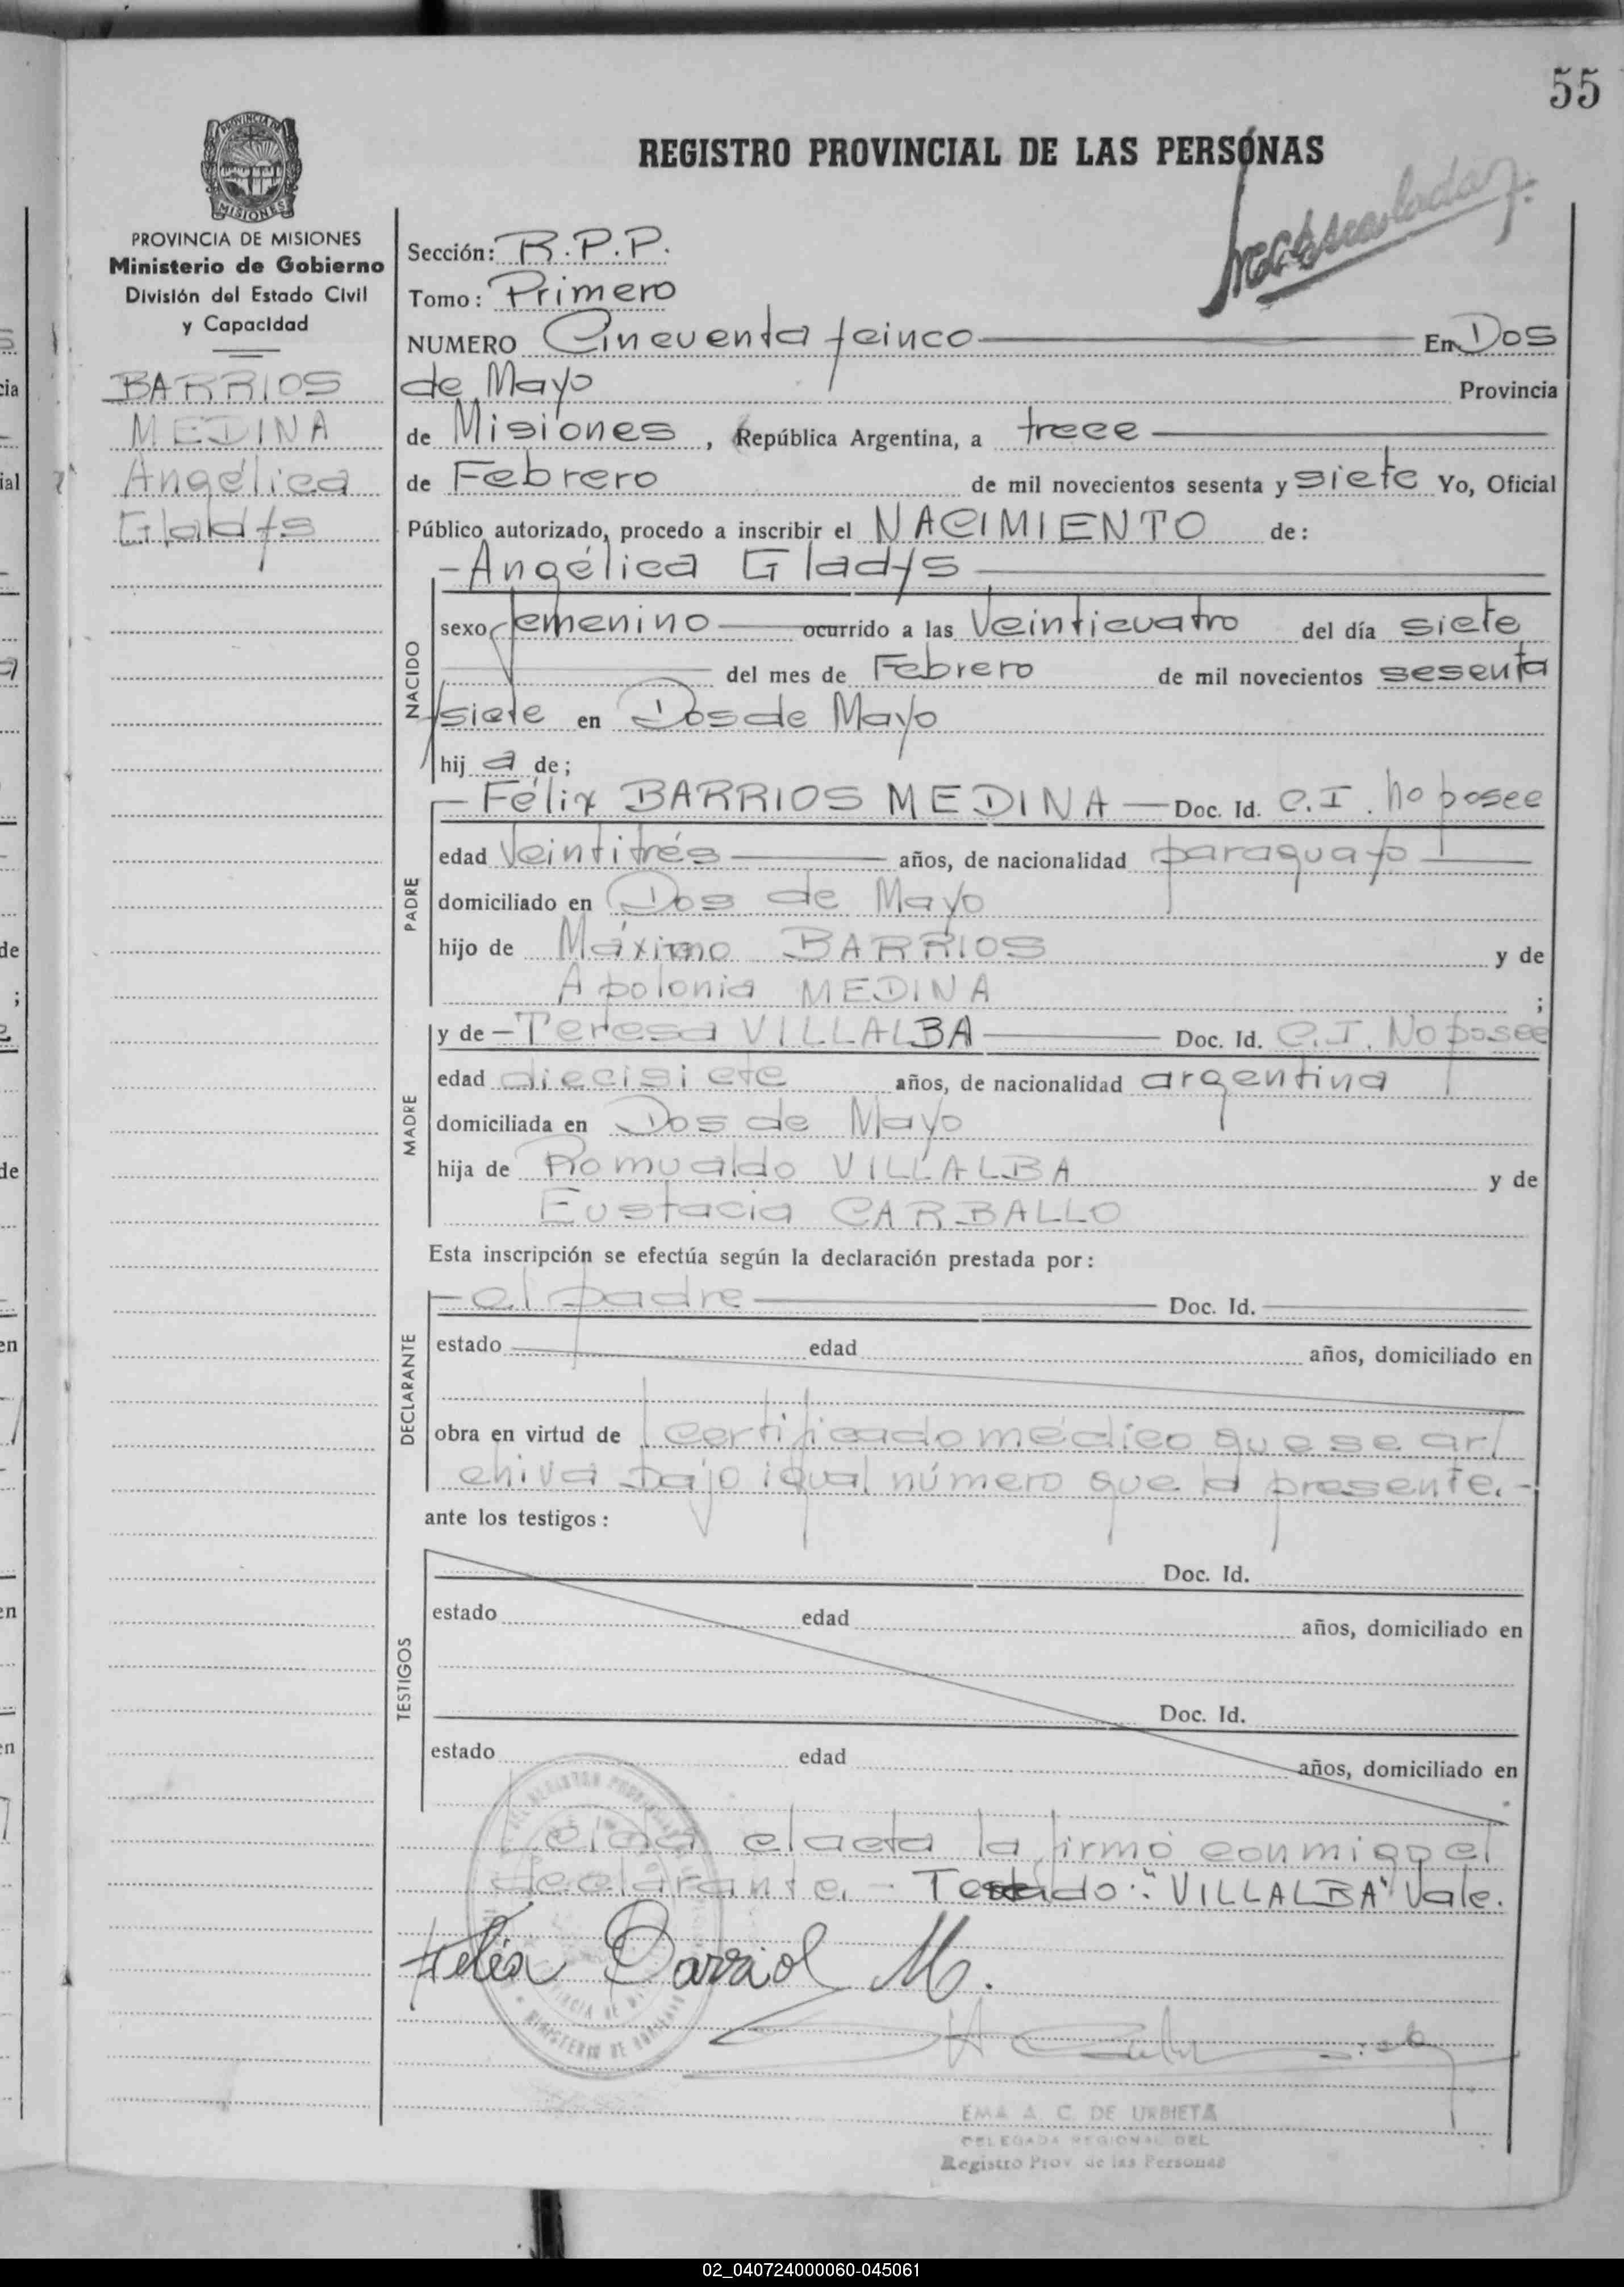 55
REGISTRO PROVINCIAL DE LAS PERSONAS
PROVINCIA DE MISIONES
MISIONES
PROVINCIA DE MISIONES
Ministerio de Gobierno
División del Estado Civil
y Capacidad
BARRIOS
MEDINA
Angélica
Gladys
Sección: R.P.P.
Tomo: Primero
NUMERO Cincuenta y cinco En Dos
de Mayo Provincia
de Misiones, República Argentina, a trece
de Febrero de mil novecientos sesenta y siete Yo, Oficial
Público autorizado, procedo a inscribir el NACIMIENTO de:
- Angélica Gladys
NACIDO
sexo femenino ocurrido a las Veinticuatro del día siete
del mes de Febrero de mil novecientos sesenta
y siete en Dos de Mayo
hij a de;
PADRE
- Félix BARRIOS MEDINA — Doc. Id. C.I. No posee
edad Veintitrés años, de nacionalidad paraguayo
domiciliado en Dos de Mayo
hijo de Máximo BARRIOS y de
Apolonia MEDINA ;
MADRE
y de - Teresa VILLALBA Doc. Id. C.I. No posee
edad diecisiete años, de nacionalidad argentina
domiciliada en Dos de Mayo
hija de Romualdo VILLALBA y de
Eustacia CARBALLO
Esta inscripción se efectúa según la declaración prestada por:
DECLARANTE
- el padre Doc. Id.
estado edad años, domiciliado en
obra en virtud de certificado médico que se ar/
chiva bajo igual número que la presente.-
ante los testigos:
TESTIGOS
Doc. Id.
estado edad años, domiciliado en
Doc. Id.
estado edad años, domiciliado en
Leída el acta la firmó conmigo el
declarante.- Testado: "VILLALBA" Vale.
Félix Barrios M.
EMA A. C. DE URBIETA
DELEGADA REGIONAL DEL
Registro Prov. de las Personas
02_040724000060-045061